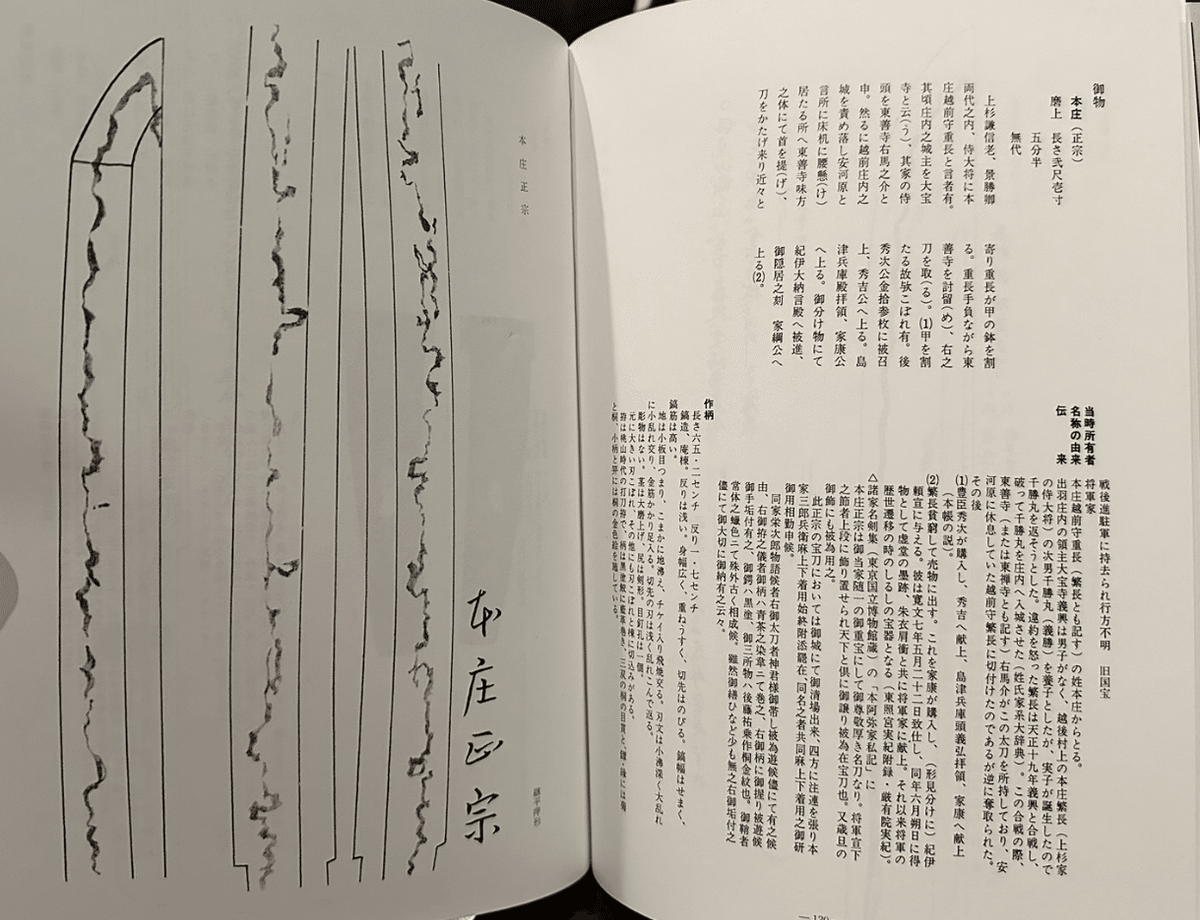 御物
本庄(正宗)
磨上 長さ弐尺壱寸
五分半
無代
上杉謙信老、景勝卿
両代之内、侍大将に本
庄越前守重長と言者有。
其頃庄内之城主を大宝
寺と云(う)、其家の侍
頭を東善寺右馬之介と
申。然るに越前庄内之
城を責め落し安河原と
言所に床机に腰懸(け)
居たる所へ東善寺味方
之体にて首を提(げ)、
刀をかたげ来り近々と
寄り重長が甲の鉢を割
る。重長手負ながら東
善寺を討留(め)、右之
刀を取(る)。(1)甲を割
たる故歟こぼれ有。後
秀次公金拾参枚に被召
上、秀吉公へ上る。島
津兵庫殿拝領、家康公
へ上る。御分け物にて
紀伊大納言殿へ被進、
御隠居之刻 家綱公へ
上る(2)。
当時所有者 戦後進駐軍に持去られ行方不明 旧国宝
将軍家
名称の由来 本庄越前守重長(繁長とも記す)の姓本庄からとる。
伝来 出羽庄内の領主大宝寺義興は男子がなく、越後村上の本庄繁長(上杉家
の侍大将)の次男千勝丸(義勝)を養子としたが、実子が誕生したので
千勝丸を返そうとした。違約を怒った繁長は天正十九年義興と合戦し、
破って千勝丸を庄内へ入城させた(姓氏家系大辞典)。この合戦の際、
東善寺(または東禅寺とも記す)右馬介がこの太刀を所持しており、安
河原に休息していた越前守繁長に切付けたのであるが逆に奪取られた。
その後
(1)豊臣秀次が購入し、秀吉へ献上、島津兵庫頭義弘拝領、家康へ献上
(本帳の説)。
(2)繁長貧窮して売物に出す。これを家康が購入し、(形見分けに)紀伊
頼宣に与える。彼は寛文七年五月二十二日致仕し、同年六月朔日に得
物として虚堂の墨跡、朱衣肩衝と共に将軍家に献上。それ以来将軍の
歴世遷移の時のしるしの宝器となる(東照宮実紀附録・厳有院実紀)。
△諸家名剣集(東京国立博物館蔵)の「本阿弥家私記」に
本庄正宗は御当家随一の御重宝にして御尊敬厚き名刀なり。将軍宣下
之節者上段に飾り置せられ天下と倶に御譲り被為在宝刀也。又歳旦の
御飾にも被為用之。
此正宗の宝刀においては御城にて御清場出来、四方に注連を張り本
家三郎兵衛麻上下着用始終附添罷在、同名之者共同麻上下着用之御研
御用相勤申候。
同家栄次郎物語候者右御太刀者神君様御帯し被為遊候儘にて有之候
由、右御拵之儀者御柄ハ青茶之染韋ニて巻之、右御柄に御握り被遊候
御手垢付有之、御鍔ハ黒塗、御三所物ハ後藤祐乗作桐金紋也。御鞘者
常体之蝋色ニて殊外古く相成候。雖然御繕ひなど少も無之右御垢付之
儘にて御大切に御納有之云々。
作柄
長さ六五・二センチ 反り一・七センチ
鎬造、庵棟。反りは浅い。身幅広く、重ねうすく、切先はのびる。鎬幅はせまく、
鎬筋は高い。
地は小板目つまり、こまかに地沸え、チケイ入り飛焼交る。刃文は小沸深く大乱れ
に小乱れ交り、金筋かかり足入る。切先の刃は浅く乱れこんで返る。
彫物はない。茎は大磨上げ、尻は剣形。目釘孔は一個。
元に大きい刃こぼれ、その他にも刃こぼれと棟に切込みがある。
拵は桃山時代の打刀拵で、柄は黒塗鮫に藍革巻き、三双の桐の目貫と、縁・
— 120
本庄正宗
本庄正宗